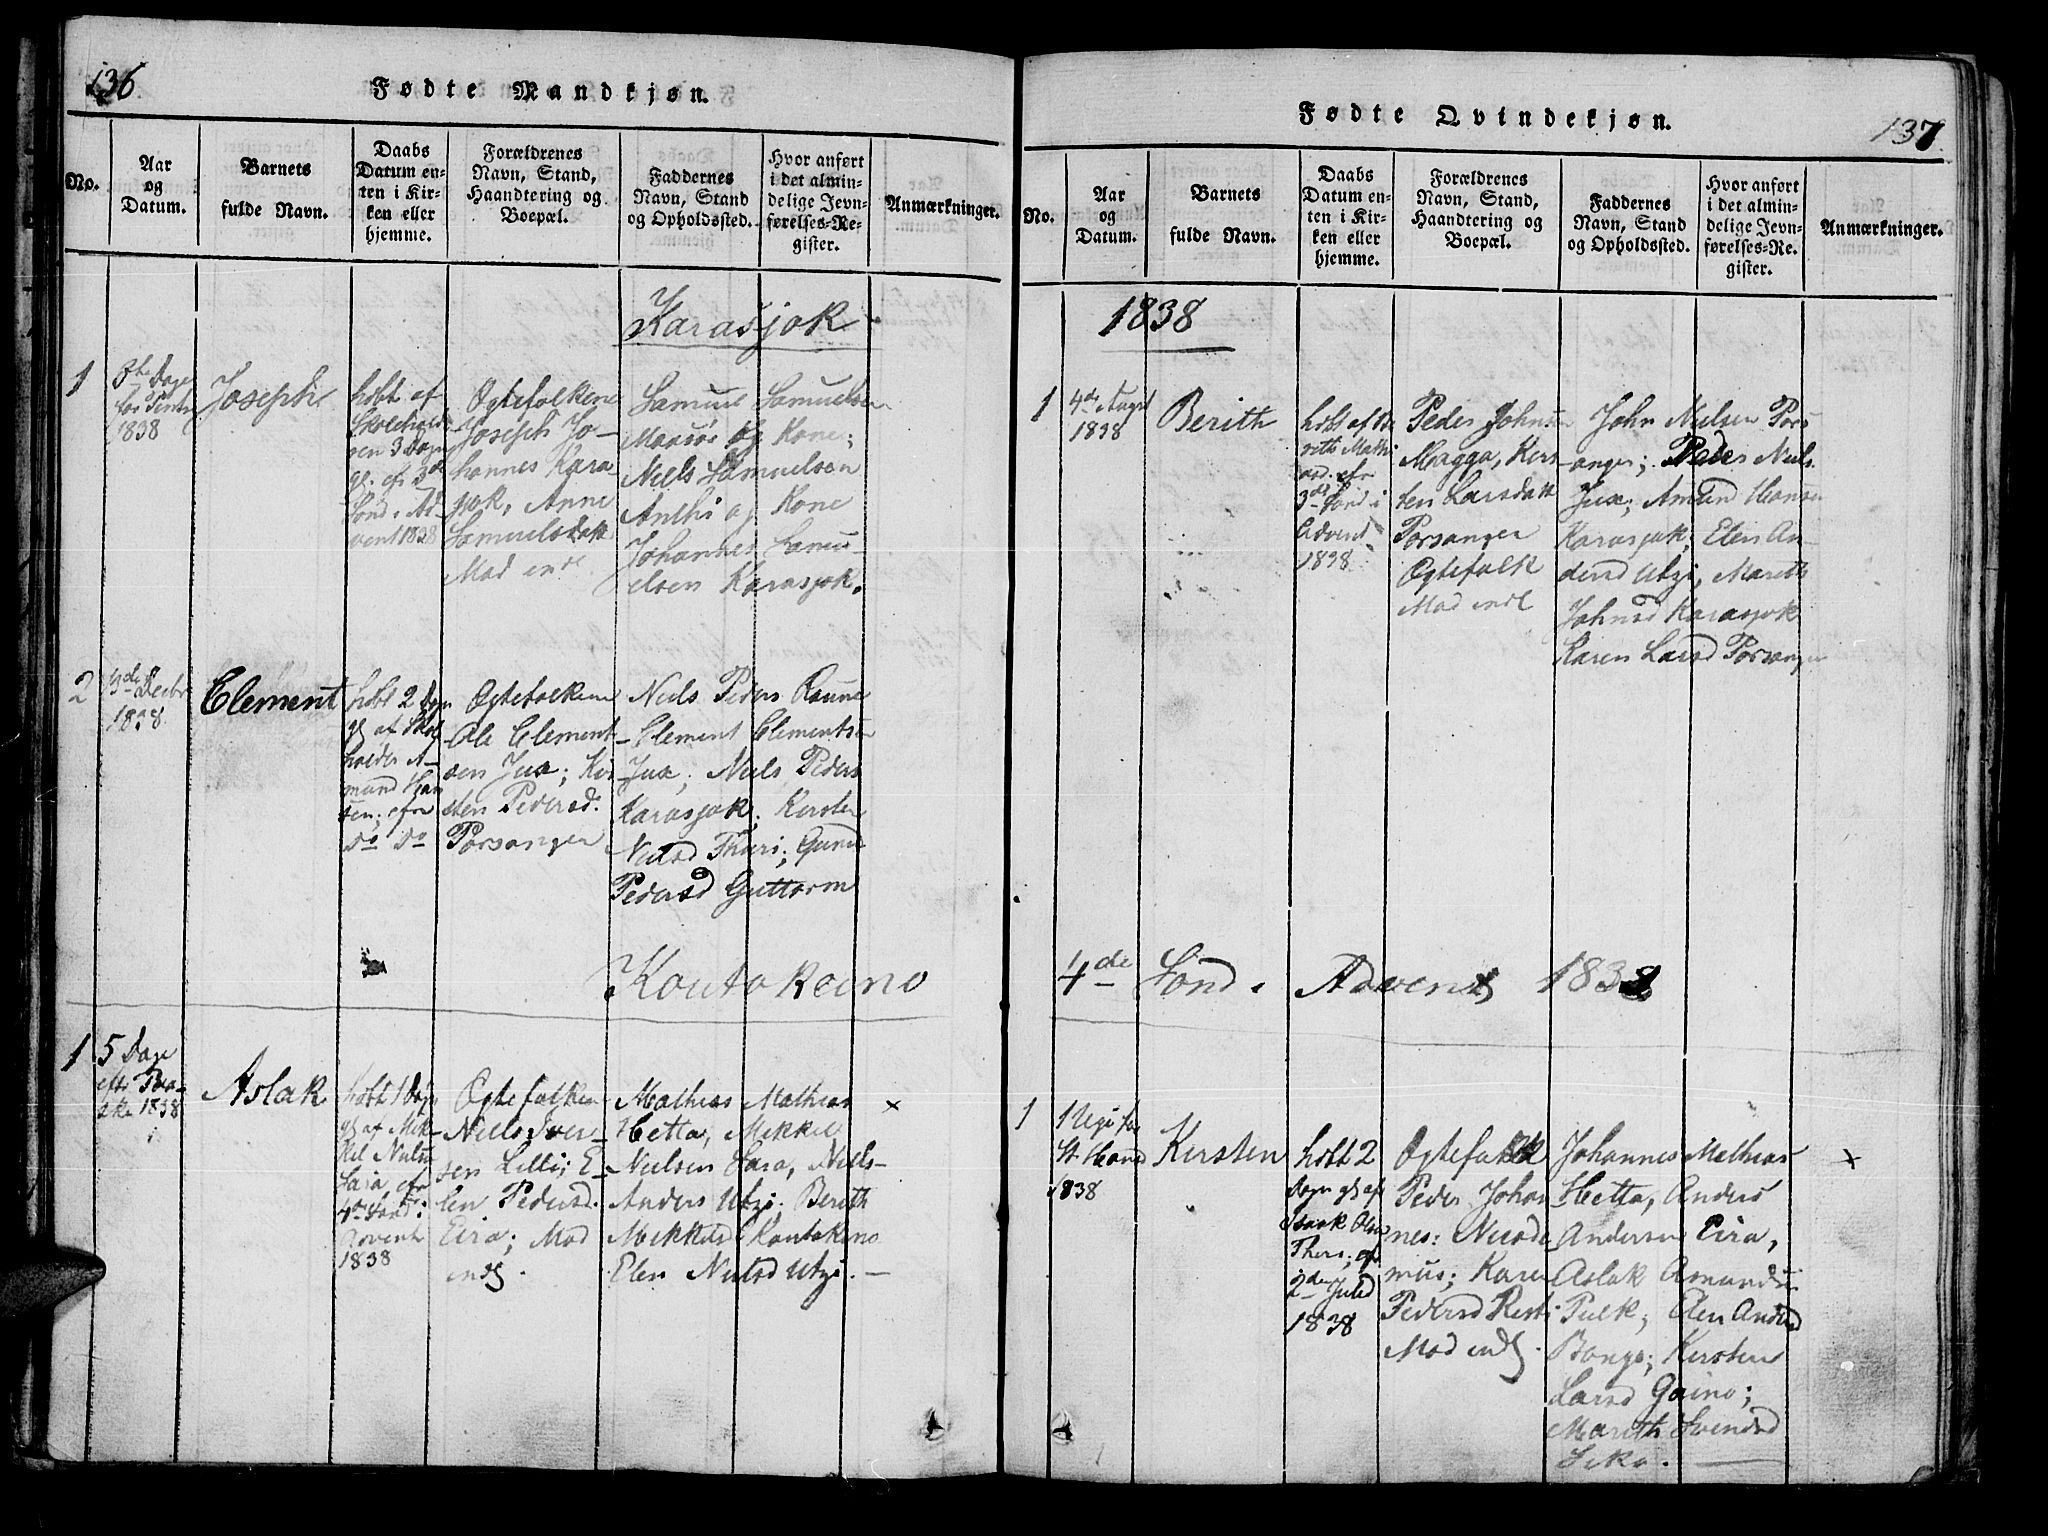 136
Fødte Mandkjøn.
No.
Aar
og
Datum.
Barnets
fulde Navn.
Daabs
Datum en-
ten i Kir-
ken eller
hjemme.
Forældrenes
Navn, Stand,
Haandtering og
Boepæl.
Faddernes
Navn, Stand
og Opholdssted.
Hvor anført
i det almin-
delige Jevn-
førelses-Re-
gister.
Anmærkninger.
Karasjok
1
1838
Joseph
hdbt af
3 Dage
gl. efr 3de
Sond. i Ad-
vent 1838
Ægtefolkene
Joseph Jo-
hannes Kara
sjok, Anne
Samuelsdatt
Mod indt
Samuel Samuelsen
og Kone;
Niels Samuelsen
Anthi og Kone
Johannes Samu-
elsen Karasjok.
2
3de Decbr
1838
Clement
hdbt 2 Dage
gl af Skol
holder A-
mund Han
sen; efr
do do
Ægtefolkene
Ole Clement-
sen Jux; Kir-
sten Pedersd.
Porsanger
Niels Peders
Clement Clementsen
Jux; Niels Peders
Karasjok; Kirsten
Nielsd Thuri;
Pedersd Guttorm
Koutokeino
1
5 Dage
eftr Paa-
ske 1838
Aslak
hdbt 1 Dag
gl af Mik-
kel Nielsen
efr
4de Sond i
Advent
1838
Ægtefolkene
Niels Iver-
sen Lilli; E-
len Pedersd.
Eira; Mod
indt.
Mathias Mathias
Hetta, Mikkel
Nielsen Sara, Niels
Anders Utzi; Berith
Mikkelsd Koutokeino
Elen Nielsd Utzi.
x
137
Fødte Qvindekjøn.
No.
Aar
og
Datum.
Barnets
fulde Navn.
Daabs
Datum en-
ten i Kir-
ken eller
hjemme.
Forældrenes
Navn, Stand,
Haandtering og
Boepæl.
Faddernes
Navn, Stand
og Opholdssted.
Hvor anført
i det almin-
delige Jevn-
førelses-Re-
gister.
Anmærkninger.
1838
1
4de August
1838
Berith
hdbt af Be
rith Mathi
asd. efr
3de Sond i
Advent
1838
Peder Johnsen
Magga, Kirs-
ten Larsdatt
Porsanger
Ægtefolk
Mod indt
John Nielsen Pors
anger; Peder Niels.
Jux; Amund Hansen
Karasjok; Elen An-
dersd Utzi, Marith
Johnsd Karasjok
Karen Larsd Porsanger
4de Sond. Advent 1838
1
1 Uge før
St. Hans
1838
Kirsten
hdbt 2
Dage gl af
Isaak Olsen
Thers; efr
2den Juled
1838
Ægtefolk
Peder Johan
nes: Nicode
mus; Karen
Pedersd
Mod indt.
Johannes Mathias
Hetta, Anders
Andersen Eira,
Aslak Amundsen
Pulk; Elen Andersd
Bongo; Kirsten
Larsd Gaino;
Marith Svendsd
Siko.
x